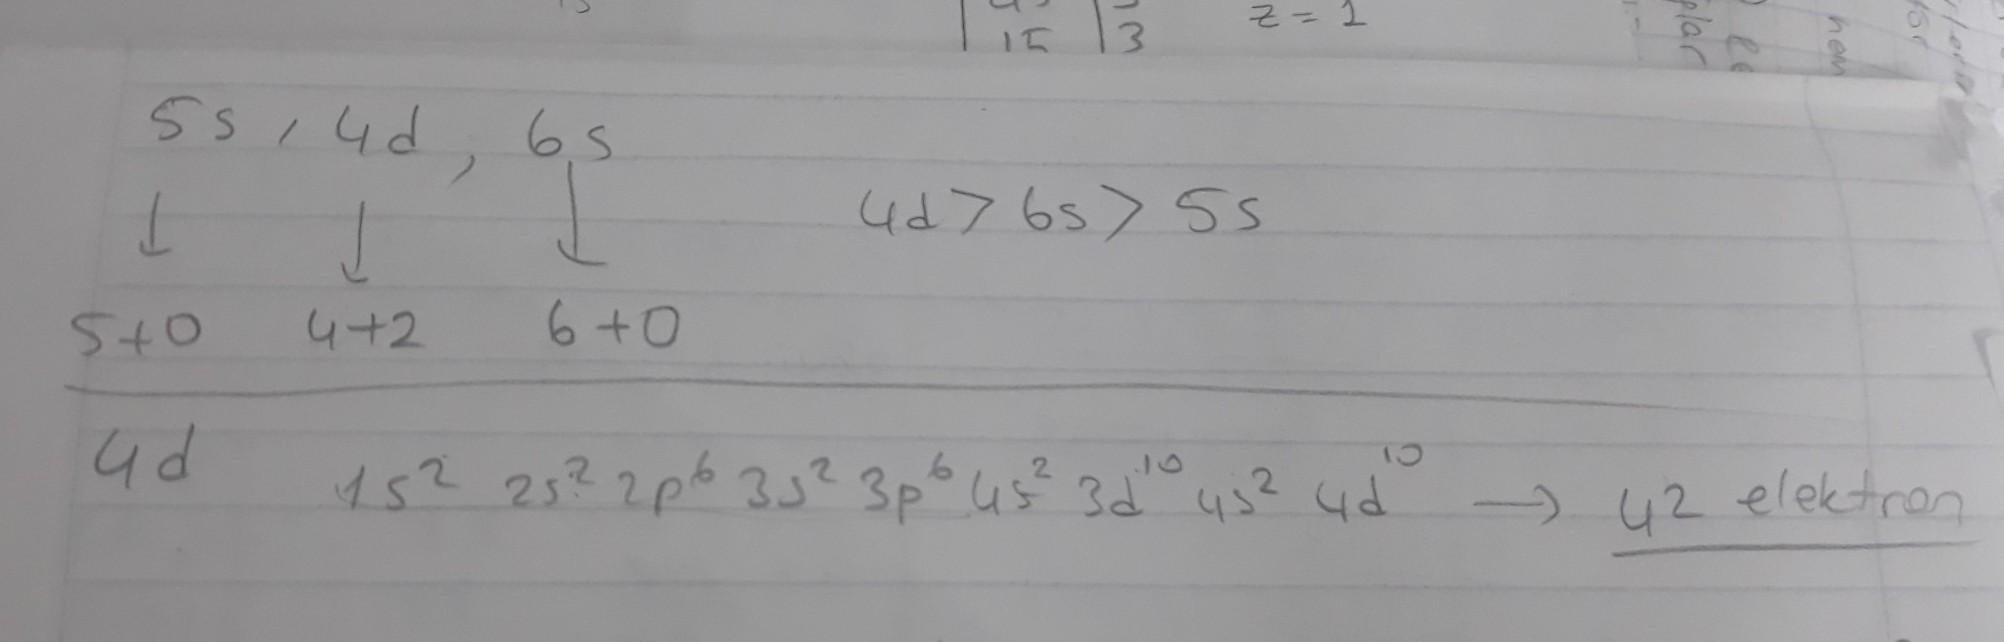 15 3 z = 1
5s, 4d, 6s
4d > 6s > 5s
5+0 4+2 6+0
4d 1s² 2s² 2p⁶ 3s² 3p⁶ 4s² 3d¹⁰ 4s² 4d¹⁰ → 42 elektron